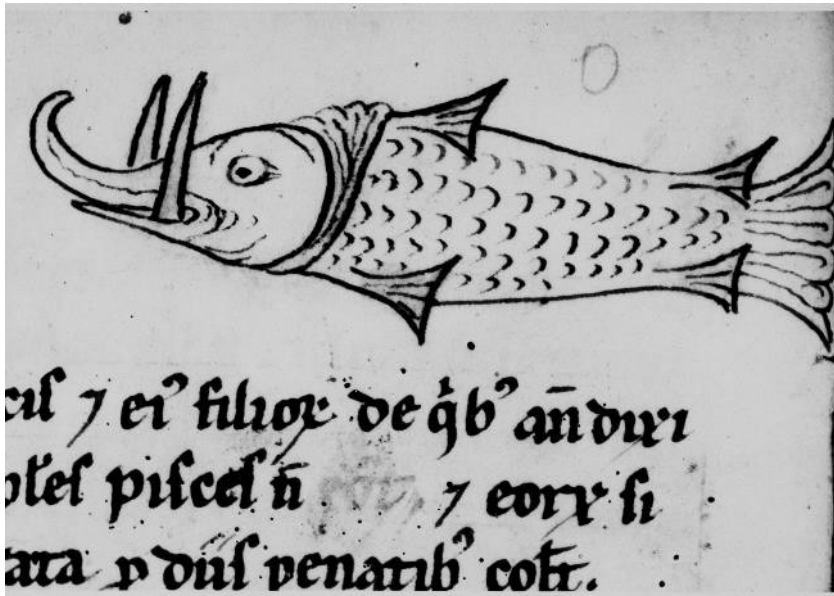 cis ⁊ eiꝰ filioꝝ de q̇bꝰ an̄ dixi
ples pisces n̄ ⁊ eoꝝ si
tata p diis penatibꝰ colt̄.